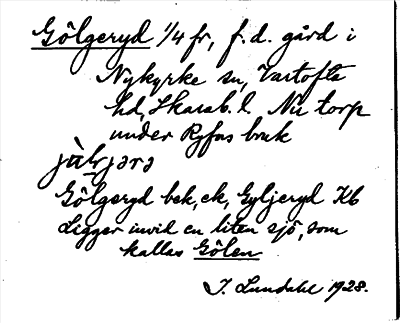 Gölgeryd 1/4 fr, f.d. gård i
Nykyrke sn, Vartofta
hd, Skarab. l. Nu torp
under Ryfors bruk
Gölgeryd bek, ek, Gyljeryd Kb
Ligger invid en liten sjö, som
kallas Gölen
J. Lundahl 1928.